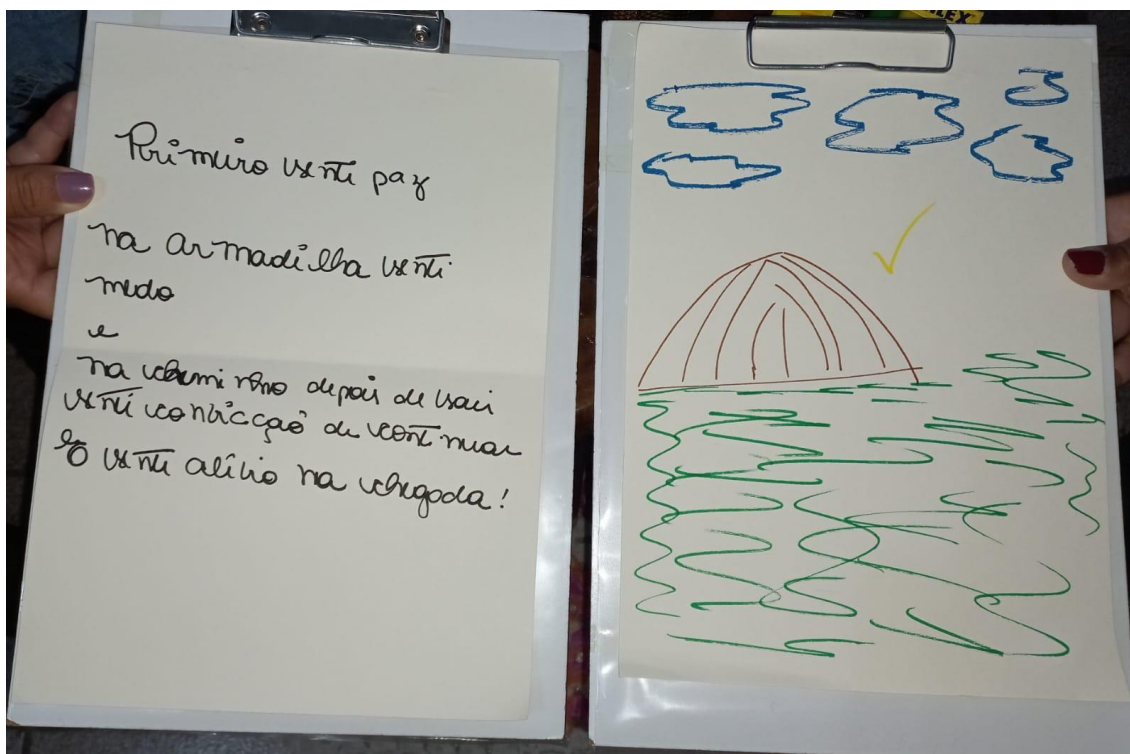 Primeiro senti paz
na armadilha senti
medo
e
na caminho depois de sair
senti convicção de continuar
E senti alívio na chegada!
LEX